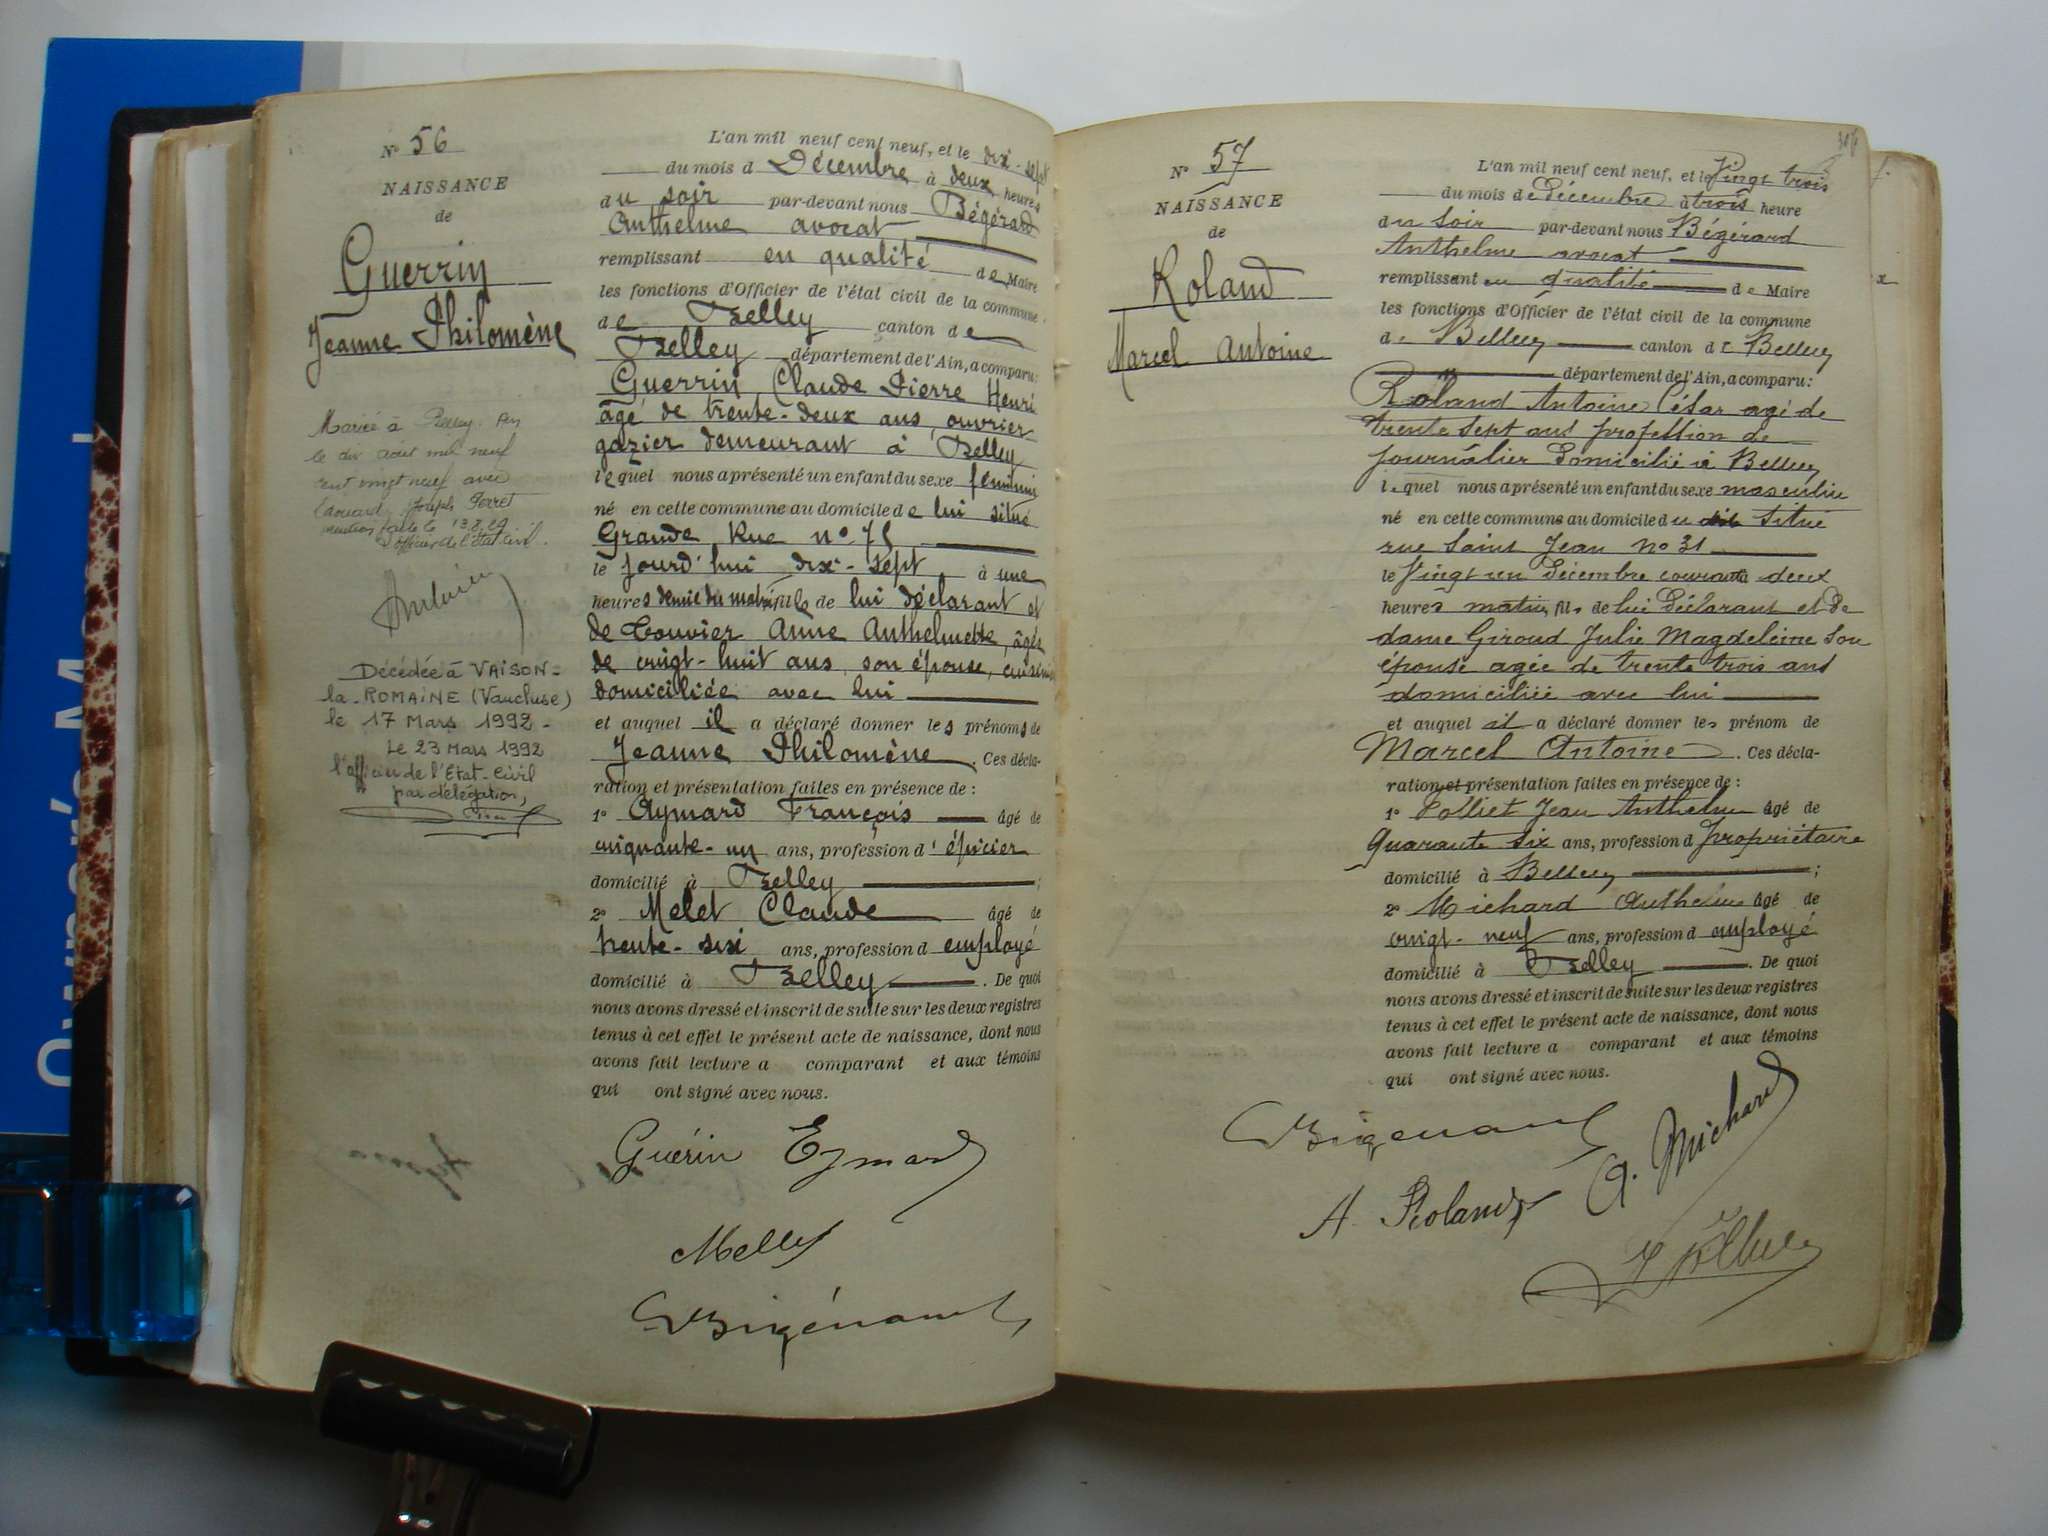 N° 56
NAISSANCE
de
Guerrin
Jeanne Philomène
Mariée à Belley, Ain
le dix août mil neuf
cent vingt neuf avec
Edouard Joseph Perret
mention faite le 13.8.29
L'officier de l'état civil.
Décédée à VAISON-
la-ROMAINE (Vaucluse)
le 17 Mars 1992 -
Le 23 Mars 1992
l'officier de l'Etat-Civil
par délégation,
L'an mil neuf cent neuf, et le dix-sept
du mois d Décembre à deux heures
du soir par-devant nous Bégérard
Anthelme avocat
remplissant en qualité de Maire
les fonctions d'Officier de l'état civil de la commune
de Belley canton de
Belley département de l'Ain, a comparu:
Guerrin Claude Pierre Henri
âgé de trente-deux ans, ouvrier
gazier demeurant à Belley
lequel nous a présenté un enfant du sexe féminin
né en cette commune au domicile de lui situé
Grande Rue n° 75
le jourd'hui dix-sept à une
heures demie du matin fille de lui déclarant et
de Bouvier Anne Anthelmette, âgée
de vingt-huit ans, son épouse,
domiciliée avec lui
et auquel il a déclaré donner les prénoms de
Jeanne Philomène. Ces décla-
ration et présentation faites en présence de :
1° Aymard François âgé de
cinquante-un ans, profession d'épicier
domicilié à Belley ;
2° Melet Claude âgé de
trente-six ans, profession d employé
domicilié à Belley. De quoi
nous avons dressé et inscrit de suite sur les deux registres
tenus à cet effet le présent acte de naissance, dont nous
avons fait lecture a comparant et aux témoins
qui ont signé avec nous.
Guérin Eymard
Mellet
N° 57
NAISSANCE
de
Roland
Marcel Antoine
L'an mil neuf cent neuf, et le Vingt trois
du mois de Décembre à trois heure
du soir par-devant nous Bégérard
Anthelme avocat
remplissant en qualité de Maire
les fonctions d'Officier de l'état civil de la commune
de Belley canton de Belley
département de l'Ain, a comparu:
Roland Antoine César agé de
trente sept ans profession de
journalier Domicilié à Belley
lequel nous a présenté un enfant du sexe masculin
né en cette commune au domicile du dit situé
rue Saint Jean n° 31
le Vingt un Décembre courant à deux
heures matin, fils de lui Déclarant et de
dame Giroud Julie Magdeleine son
épouse agée de trente trois ans
domiciliée avec lui
et auquel il a déclaré donner les prénom de
Marcel Antoine. Ces décla-
ration et présentation faites en présence de :
1° Polliet Jean Anthelme âgé de
Quarante Six ans, profession d propriétaire
domicilié à Belley ;
2° Michard Anthelme âgé de
vingt-neuf ans, profession d employé
domicilié à Belley. De quoi
nous avons dressé et inscrit de suite sur les deux registres
tenus à cet effet le présent acte de naissance, dont nous
avons fait lecture a comparant et aux témoins
qui ont signé avec nous.
A. Michard
A. Roland